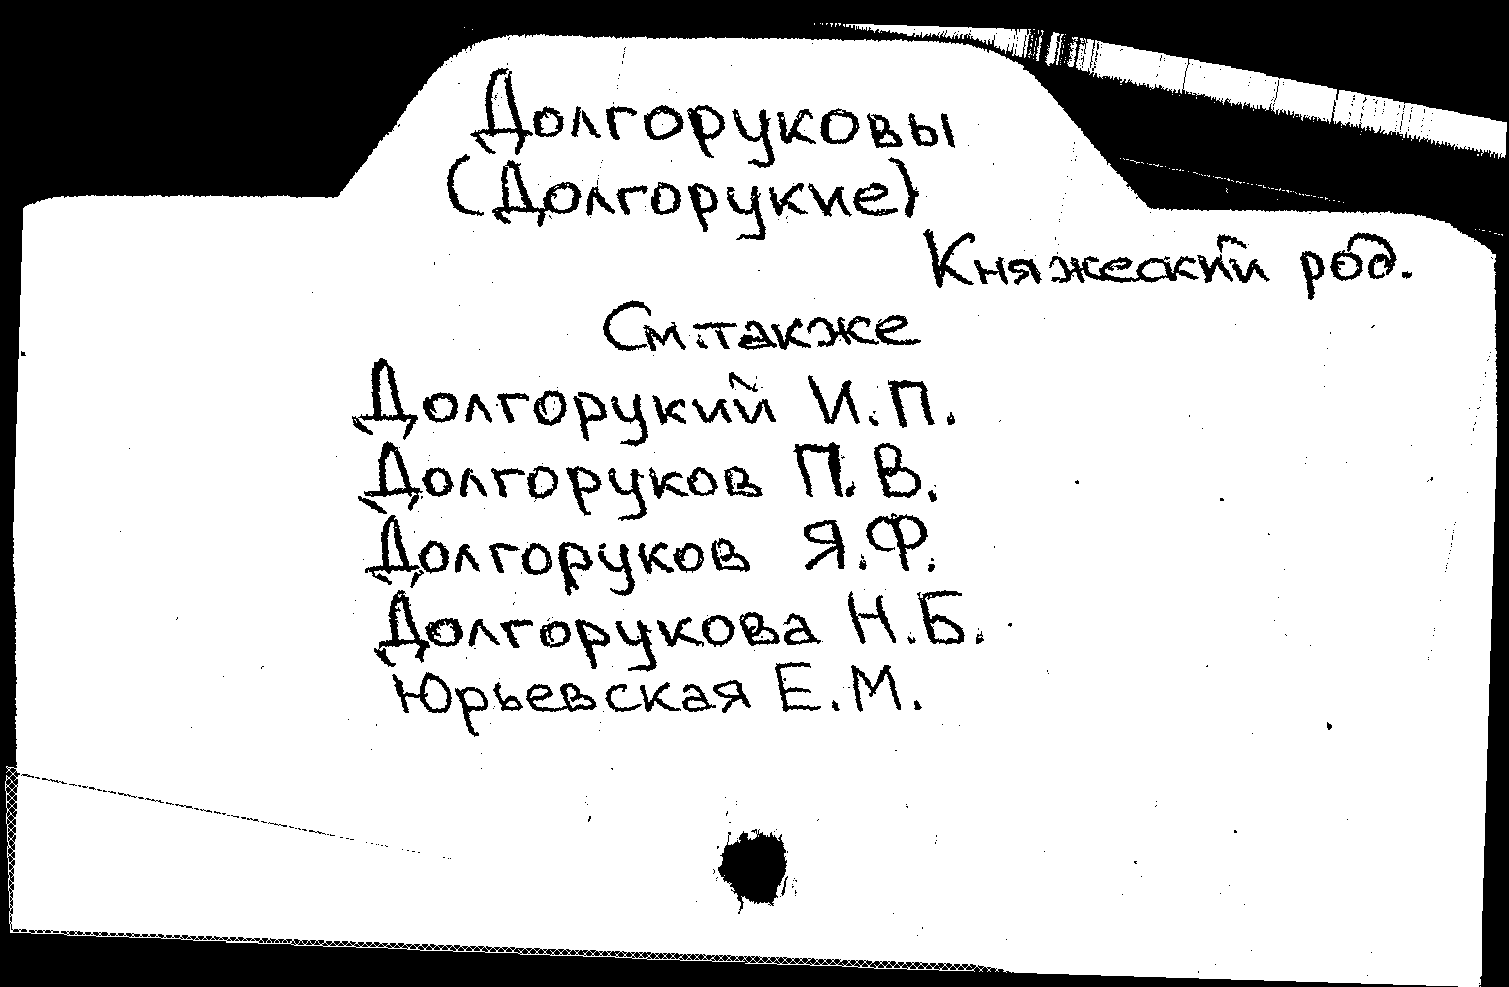 Долгоруковы
(Долгорукие)
Княжеский род.
См. также
Долгорукий И.П.
Долгоруков П.В.
Долгоруков Я.Ф.
Долгорукова Н.Б.
Юрьевская Е.М.